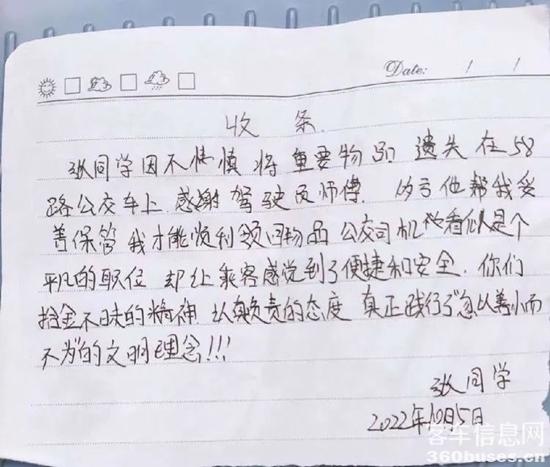 Date: / /
收 条
张同学因不慎慎将重要物品 遗失在58
路公交车上.感谢驾驶员师傅.的亏他帮我妥
善保管我才能顺利领回物品 公交司机他看似是个
平凡的职位 却让乘客感觉到了便捷和安全.你们
拾金不昧的精神.认真负责的态度 真正践行了"勿以善小而
不为"的文明理念!!!
张同学
2022年10月5日
客车信息网
360buses.cn